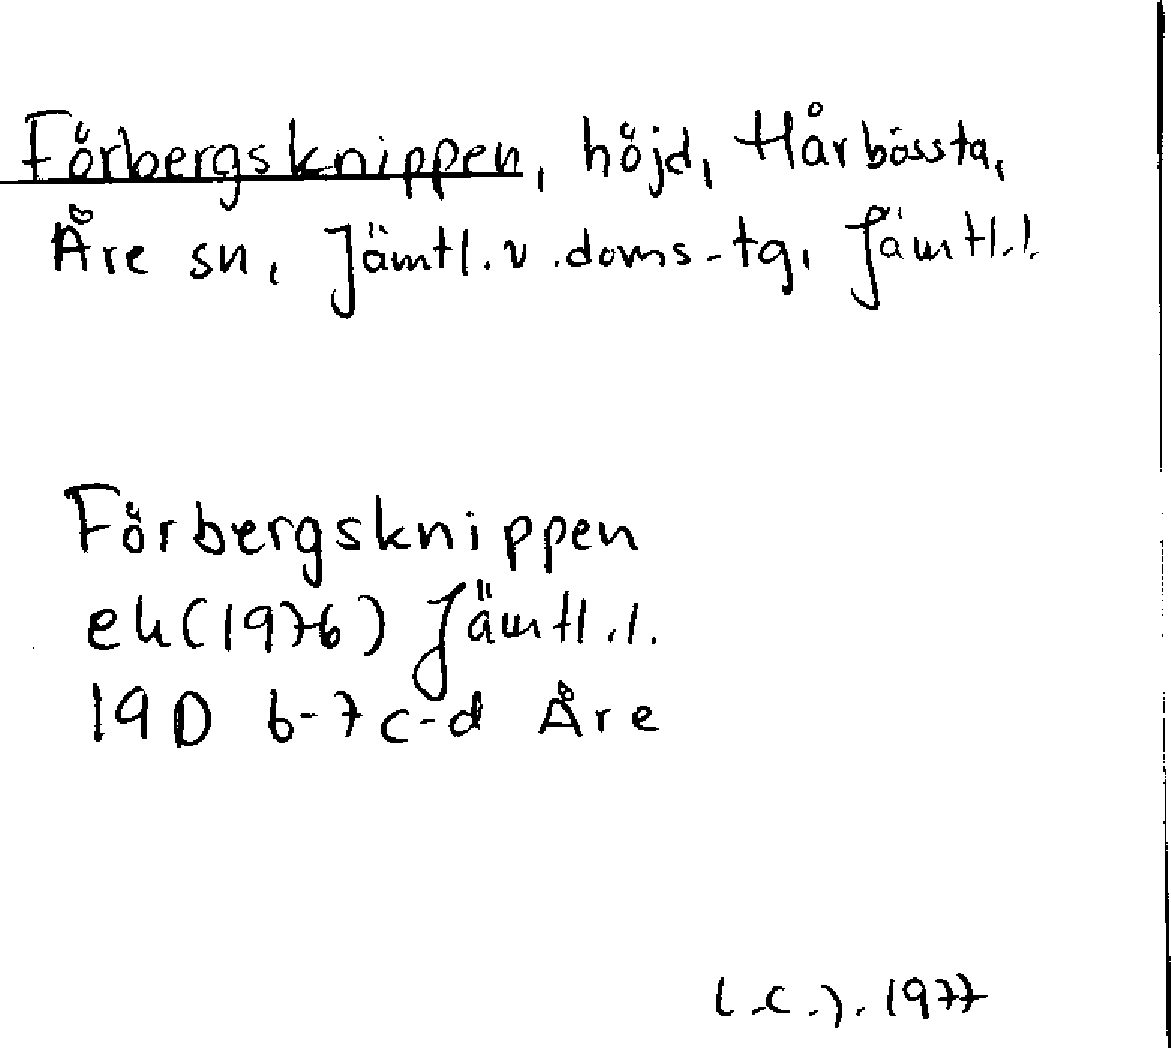 Förbergsknippen, höjd, Hårbössta,
Åre sn, Jämtl. v. doms-tg, Jämtl. l.
Förbergsknippen
ek (1976) Jämtl. l.
19D 6-7c-d Åre
L.C.J. 1977